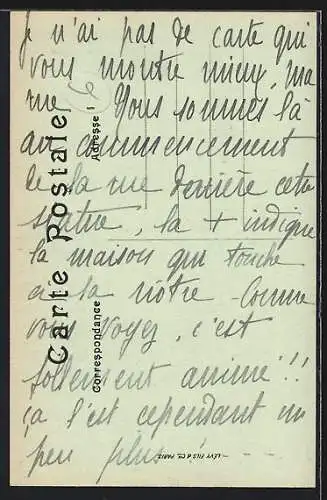 Je n'ai pas de carte qui
vous montre mieux, ma
rue. Nous sommes là
au commencement
de la rue derrière cette
statue, la + indique
la maison qui touche
à la nôtre - Comme
vous voyez, c'est
follement animé!!
ça l'est cependant un
peu plus
Carte Postale
Correspondance
Adresse
LÉVY FILS & Cie, PARIS